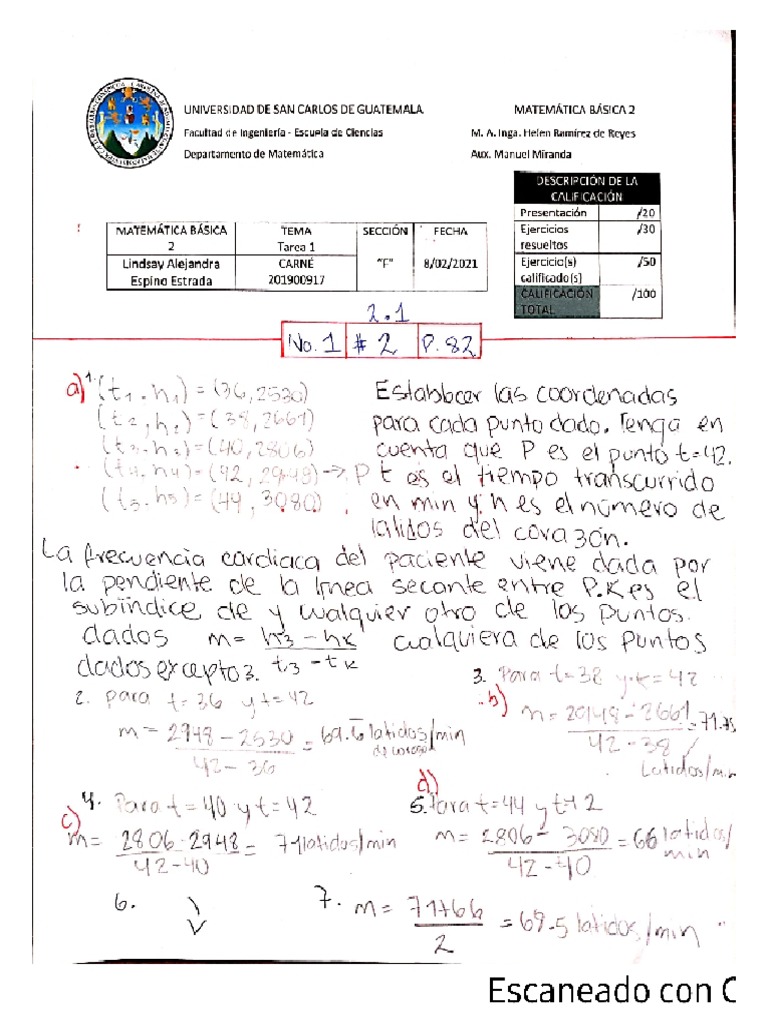 UNIVERSIDAD DE SAN CARLOS DE GUATEMALA
Facultad de Ingeniería - Escuela de Ciencias
Departamento de Matemática
MATEMÁTICA BÁSICA 2
M. A. Inga. Helen Ramírez de Reyes
Aux. Manuel Miranda
DESCRIPCIÓN DE LA CALIFICACIÓN
Presentación /20
Ejercicios resueltos /30
Ejercicio(s) calificado(s) /50
CALIFICACIÓN TOTAL /100
MATEMÁTICA BÁSICA 2 TEMA SECCIÓN FECHA
Tarea 1
Lindsay Alejandra Espino Estrada CARNÉ 201900917 "F" 8/02/2021
2.1
No. 1 # 2 P. 82
a) 1. (t1, h1) = (36, 2530)
(t2, h2) = (38, 2661)
(t3, h3) = (40, 2806)
(t4, h4) = (42, 2948) -> P
(t5, h5) = (44, 3080)
Establecer las coordenadas
para cada punto dado. Tenga en
cuenta que P es el punto t=42.
t es el tiempo transcurrido
en min y h es el número de
latidos del corazón.
La frecuencia cardiaca del paciente viene dada por
la pendiente de la línea secante entre P. K es el
subíndice de y cualquier otro de los puntos.
dados m = h3 - hk / t3 - tk cualquiera de los puntos
dados excepto 3.
2. para t=36 y t=42
m = 2948 - 2530 / 42 - 36 = 69.6 latidos/min
de corazon
3. Para t=38 y t=42
b) m = 2948 - 2661 / 42 - 38 = 71.75
Latidos/min
c) 4. Para t=40 y t=42
m = 2806 - 2948 / 42 - 40 = 71 latidos/min
d) 5. Para t=44 y t=42
m = 2806 - 3080 / 42 - 40 = 66 latidos/min
6.
7. m = 71+66 / 2 = 69.5 latidos/min
Escaneado con C